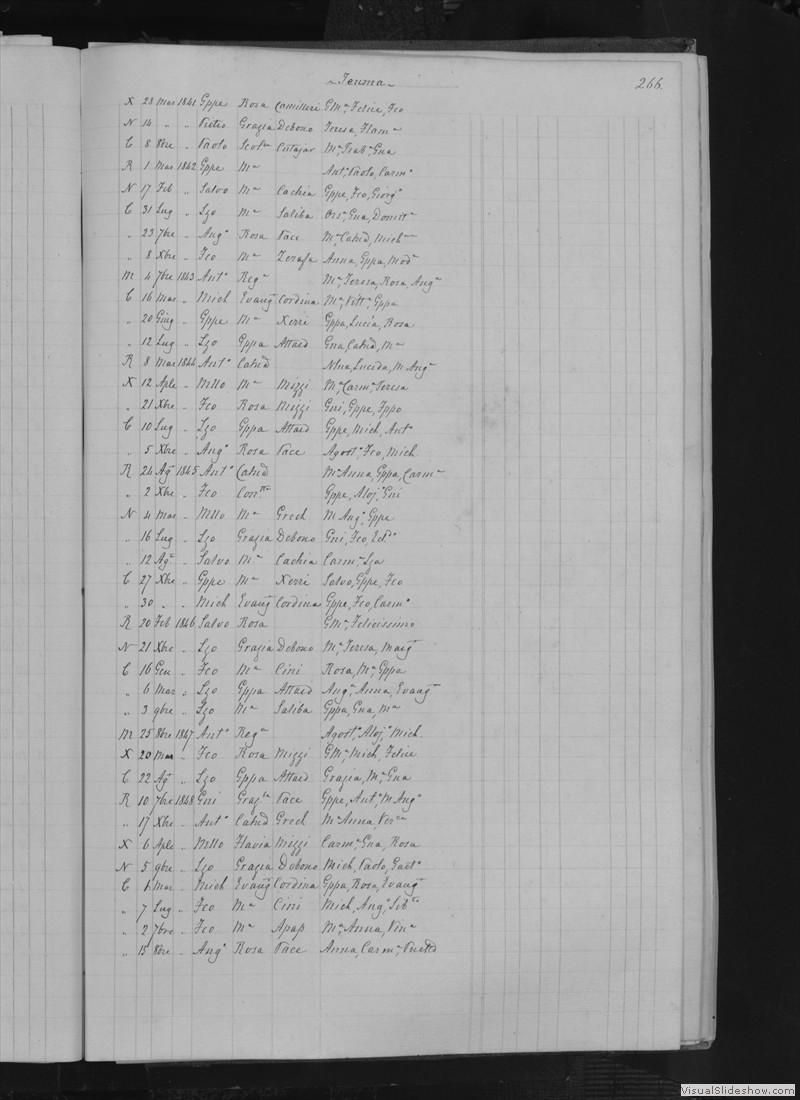 Tenma
266.
X 28 Mar 1841 Gppe Rosa Camilleri GMa, Felice, Fco
N 14 " " Pietro Grazia Debono Teresa, Flam
C 8 8bre " Paolo Scola Cutajar Ma, Isaba, Gna
R 1 Mar 1842 Gppe Ma Anto, Paolo, Carmo
N 17 Feb " Salvo Ma Cachia Gppe, Fco, Giorgo
C 31 Lug " Lzo Ma Saliba Orsa, Gna, Domitta
" 23 7bre " Ango Rosa Pace Ma, Catnd, Mich
" 8 Xbre " Fco Ma Zerafa Anna, Gppa, Moda
M 4 7bre 1843 Anto Rega Ma, Teresa, Rosa, Anga
C 16 Mar " Mich Evang Cordina Ma, Vitta, Gppa
" 20 Giug " Gppe Ma Xerri Gppa, Lucia, Rosa
" 12 Lug " Lzo Gppa Attard Gna, Catnd, Ma
R 8 Mar 1844 Anto Catnd Nlna, Lucida, M Anga
X 12 Aple " Mllo Ma Mizzi Ma Carma Teresa
" 21 Xbre " Fco Rosa Mizzi Gni, Gppe, Fppo
C 10 Lug " Lzo Gppa Attard Gppe, Mich, Anto
" 5 Xbre " Ango Rosa Pace Agosto, Fco, Mich
R 24 Ago 1845 Anto Catnd Ma Anna, Gppa, Carma
" 2 Xbre " Fco Contta Gppe, Alojo, Gni
N 4 Mar " Mllo Ma Grech M Ango, Gppe
" 16 Lug " Lzo Grazia Debono Gni, Fco, Edo
" 12 Ago " Salvo Ma Cachia Carma, Lza
C 27 Xbre " Gppe Ma Xerri Salvo, Gppe, Fco
" 30 " " Mich Evang Cordina Gppe, Fco, Carmo
R 20 Feb 1846 Salvo Rosa GMa, Felicissimo
N 21 Xbre " Lzo Grazia Debono Ma, Teresa, Marg
C 16 Gen " Fco Ma Cini Rosa, Ma, Gppa
" 6 Mar " Lzo Gppa Attard Anga, Anna, Evang
" 3 9bre " Lzo Ma Saliba Gppa, Gna, Ma
M 25 8bre 1847 Anto Rega Agosto, Alojo, Mich.
X 20 Mar " Fco Rosa Mizzi GMa, Mich, Felice
C 22 Ago " Lzo Gppa Attard Grazia, Ma, Gna
R 10 7bre 1848 Gni Grazla Pace Gppe, Anto, M Ango
" 17 Xbre " Anto Catnd Grech Ma Anna, Verca
X 6 Aple " Mllo Flavia Mizzi Carma, Gna, Rosa
N 5 9bre " Lzo Grazia Debono Mich, Paolo, Gaeto
C 6 Mar " Mich Evang Cordina Gppa, Rosa, Evang
" 7 Lug " Fco Ma Cini Mich, Ango
" 2 7bre " Fco Ma Apap Ma, Anna, Vina
" 15 8bre " Ango Rosa Pace Anna, Carma
VisualSlideshow.com